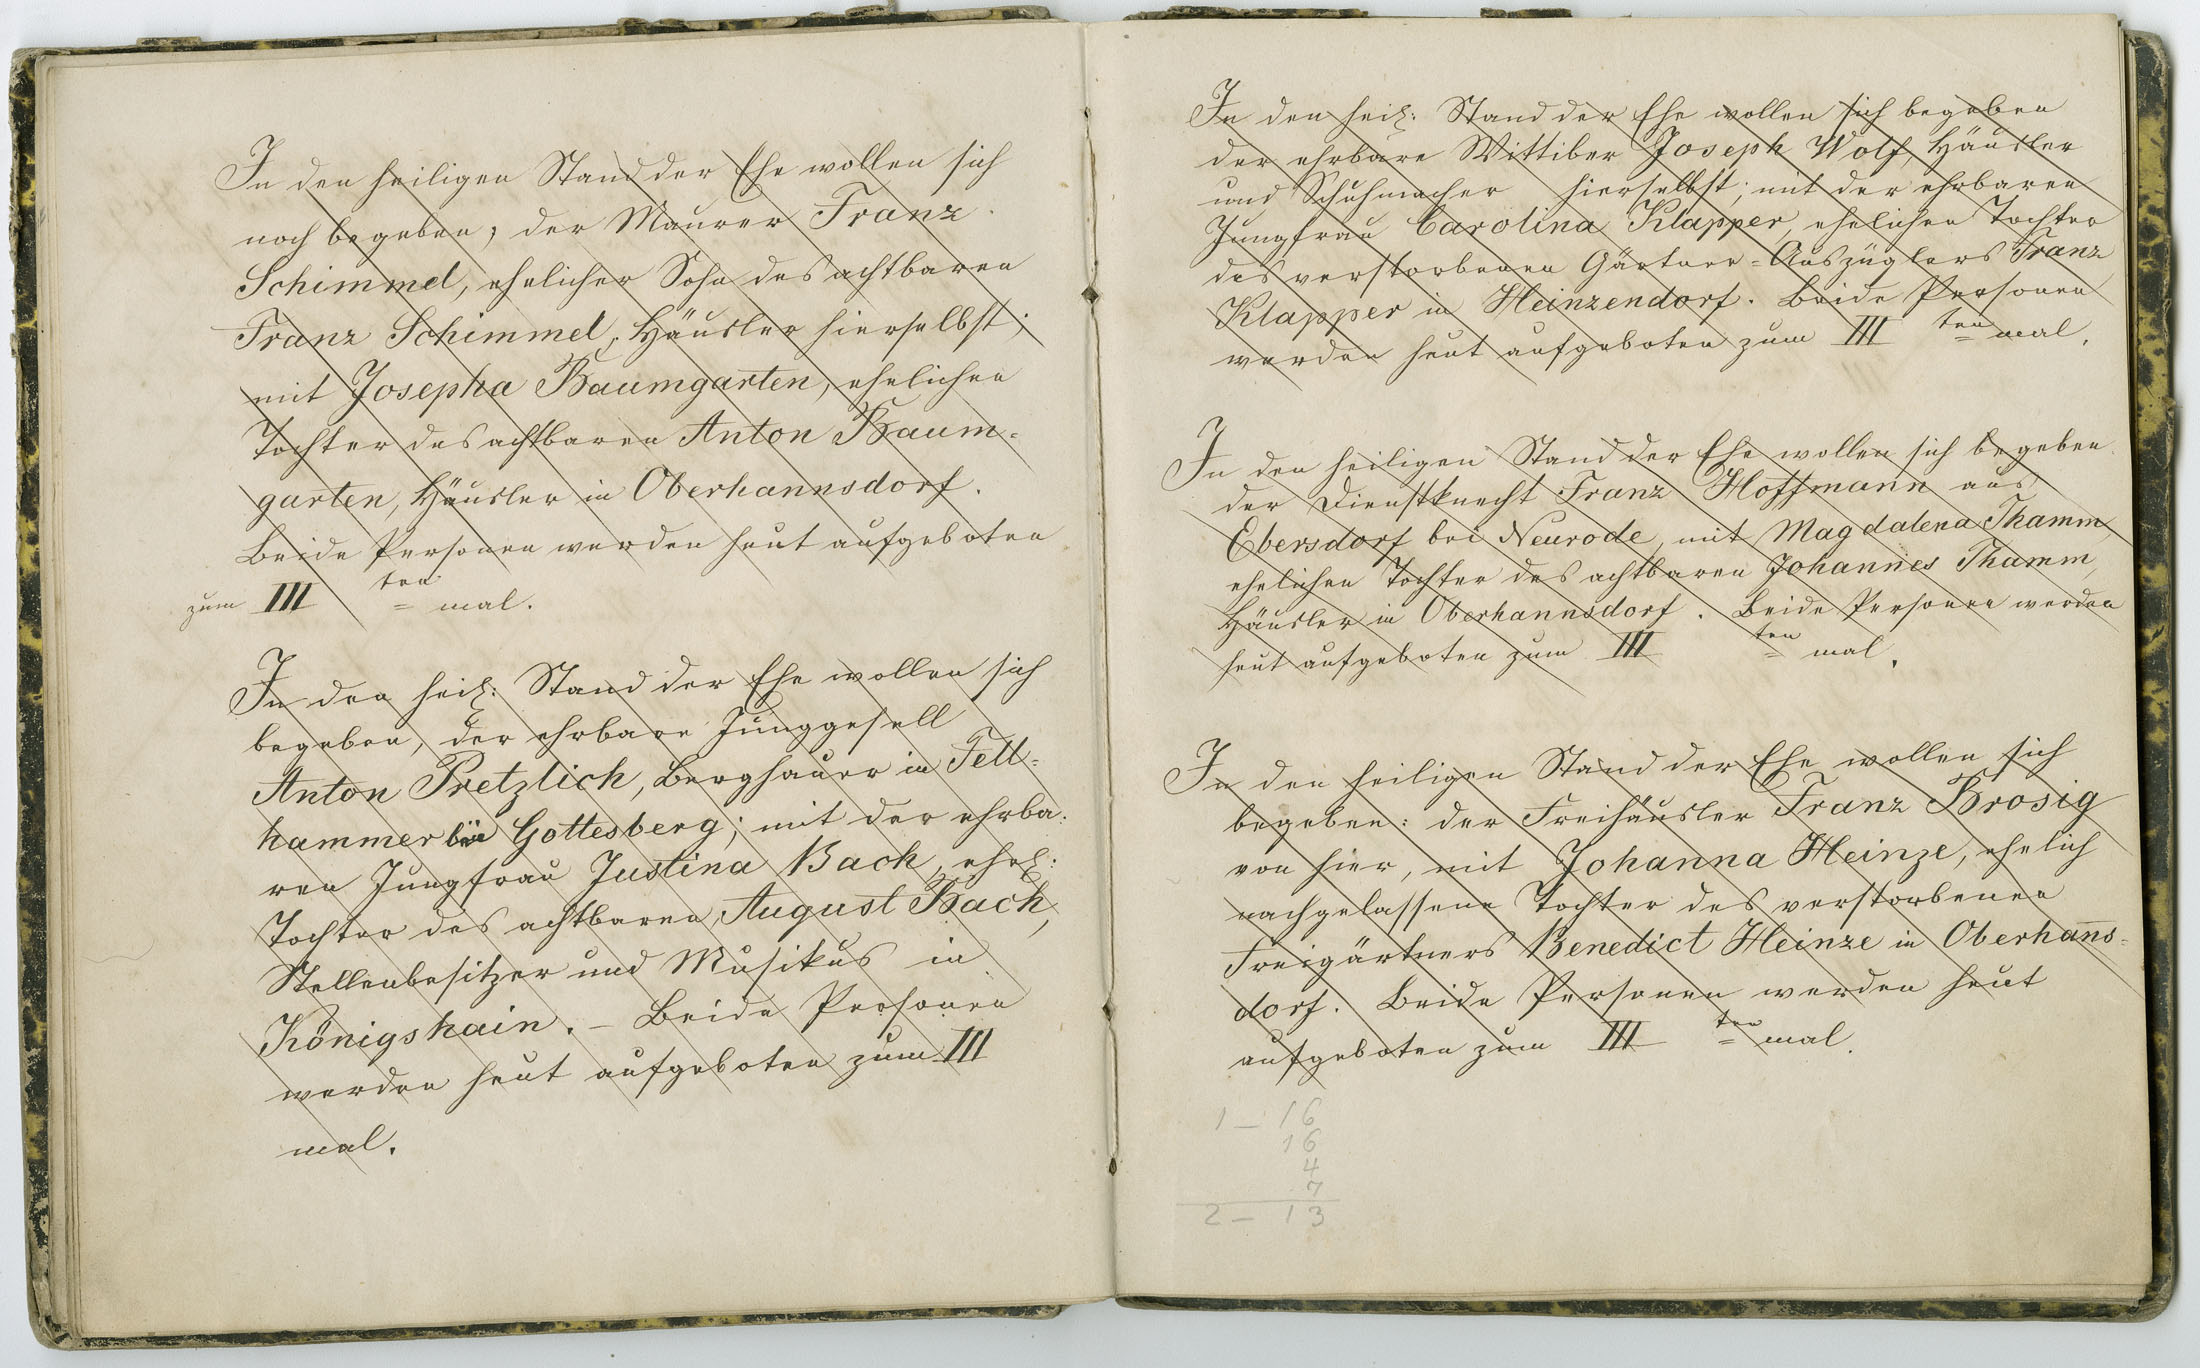 In den heiligen Stand der Ehe wollen sich
noch begeben, der Maurer Franz
Schimmel, ehelicher Sohn des achtbaren
Franz Schimmel, Häusler hierselbst;
mit Josepha Baumgarten, ehelichen
Tochter des achtbaren Anton Baum-
garten, Häusler in Oberhannsdorf.
Beide Personen werden heut aufgeboten
zum III ten mal.
In den heil: Stand der Ehe wollen sich
begeben, der ehrbare Junggesell
Anton Pretzlich, Berghauer in Fell-
hammer bei Gottesberg; mit der ehrba:
ren Jungfrau Justina Bach, ehel:
Tochter des achtbaren August Bach,
Stellenbesitzer und Musikus in
Königshain. – Beide Personen
werden heut aufgeboten zum III
mal.
In den heil: Stand der Ehe wollen sich begeben
der ehrbare Wittiber Joseph Wolf, Häusler
und Schuhmacher hierselbst; mit der ehrbaren
Jungfrau Carolina Klapper, ehelichen Tochter
des verstorbenen Gärtner-Auszüglers Franz
Klapper in Heinzendorf. Beide Personen
werden heut aufgeboten zum III ten mal.
In den heiligen Stand der Ehe wollen sich begeben
der Dienstknecht Franz Hoffmann aus
Ebersdorf bei Neurode, mit Magdalena Thamm,
ehelichen Tochter des achtbaren Johannes Thamm,
Häusler in Oberhannsdorf. Beide Personen werden
heut aufgeboten zum III ten mal.
In den heiligen Stand der Ehe wollen sich
begeben: der Freihäusler Franz Brosig
von hier, mit Johanna Heinze, ehelich
nachgelassene Tochter des verstorbenen
Freigärtners Benedict Heinze in Oberhan̄s-
dorf. Beide Personen werden heut
aufgeboten zum III ten mal.
1 – 16
16
4
7
2 – 13